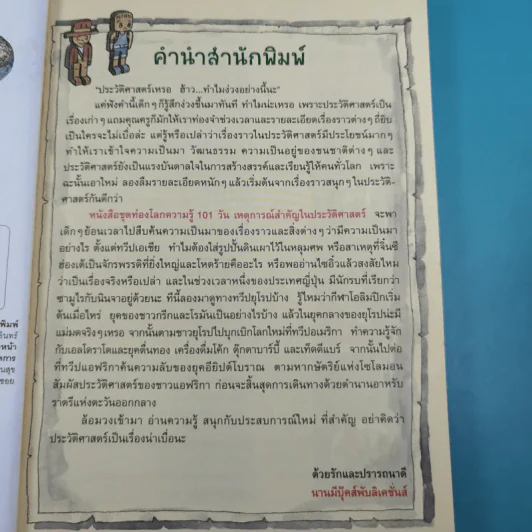 คำนำสำนักพิมพ์
"ประวัติศาสตร์เหรอ ฮ้าว...ทำไมง่วงอย่างนี้นะ"
แค่ฟังคำนี้เด็กๆ ก็รู้สึกง่วงขึ้นมาทันที ทำไมน่ะเหรอ เพราะประวัติศาสตร์เป็น
เรื่องเก่าๆ แถมคุณครูก็มักให้เราท่องจำช่วงเวลาและรายละเอียดเรื่องราวต่างๆ ถี่ยิบ
เป็นใครจะไม่เบื่อล่ะ แต่รู้หรือเปล่าว่าเรื่องราวในประวัติศาสตร์มีประโยชน์มากๆ
ทำให้เราเข้าใจความเป็นมา วัฒนธรรม ความเป็นอยู่ของชนชาติต่างๆ และ
ประวัติศาสตร์ยังเป็นแรงบันดาลใจในการสร้างสรรค์และเรียนรู้ให้คนทั่วโลก เพราะ
ฉะนั้นเอาใหม่ ลองลืมรายละเอียดหนักๆ แล้วเริ่มต้นจากเรื่องราวสนุกๆ ในประวัติ-
ศาสตร์กันดีกว่า
หนังสือชุดท่องโลกความรู้ 101 วัน เหตุการณ์สำคัญในประวัติศาสตร์ จะพา
เด็กๆ ย้อนเวลาไปสืบค้นความเป็นมาของเรื่องราวและสิ่งต่างๆ ว่ามีความเป็นมา
อย่างไร ตั้งแต่ทวีปเอเชีย ทำไมต้องใส่รูปปั้นดินเผาไว้ในหลุมศพ หรือสาเหตุที่จิ๋นซี
ฮ่องเต้เป็นจักรพรรดิที่ยิ่งใหญ่และโหดร้ายคืออะไร หรือพออ่านไซอิ๋วแล้วสงสัยไหม
ว่าเป็นเรื่องจริงหรือเปล่า และในช่วงเวลาหนึ่งของประเทศญี่ปุ่น มีนักรบที่เรียกว่า
ซามูไรกับนินจาอยู่ด้วยนะ ทีนี้ลองมาดูทางทวีปยุโรปบ้าง รู้ไหมว่ากีฬาโอลิมปิกเริ่ม
ต้นเมื่อไหร่ ยุคของชาวกรีกและโรมันเป็นอย่างไรบ้าง แล้วในยุคกลางของยุโรปน่ะมี
แม่มดจริงๆ เหรอ จากนั้นตามชาวยุโรปไปบุกเบิกโลกใหม่ที่ทวีปอเมริกา ทำความรู้จัก
กับเอลโดราโดและยุคตื่นทอง เครื่องดื่มโค้ก ตุ๊กตาบาร์บี้ และเท็ดดี้แบร์ จากนั้นไปต่อ
ที่ทวีปแอฟริกาค้นความลับของยุคอียิปต์โบราณ ตามหากษัตริย์แห่งโซโลมอน
สัมผัสประวัติศาสตร์ของชาวแอฟริกา ก่อนจะสิ้นสุดการเดินทางด้วยตำนานอาหรับ
ราตรีแห่งตะวันออกกลาง
ล้อมวงเข้ามา อ่านความรู้ สนุกกับประสบการณ์ใหม่ ที่สำคัญ อย่าคิดว่า
ประวัติศาสตร์เป็นเรื่องน่าเบื่อนะ
ด้วยรักและปรารถนาดี
นานมีบุ๊คส์พับลิเคชั่นส์